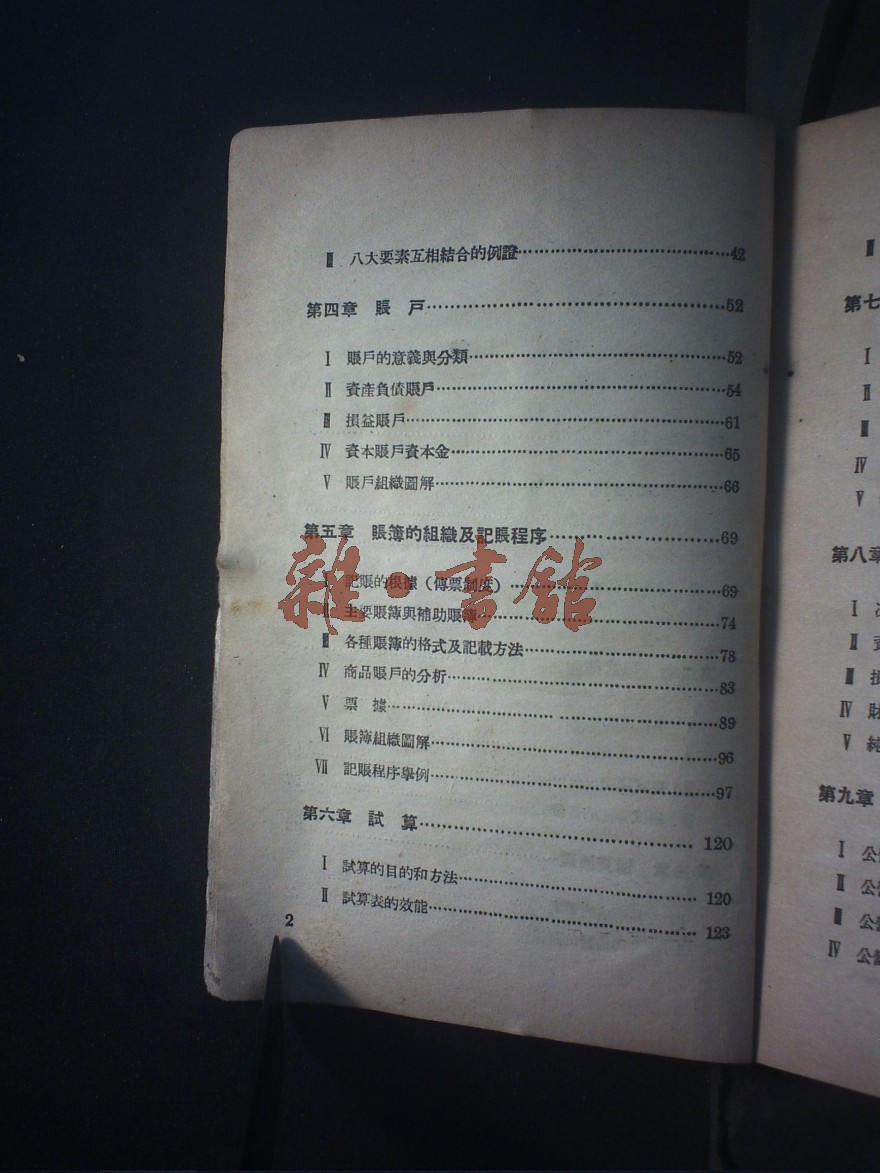 Ⅲ 八大要素互相結合的例證……42
第四章 賬 戶……52
Ⅰ 賬戶的意義與分類……52
Ⅱ 資產負債賬戶……54
Ⅲ 損益賬戶……61
Ⅳ 資本賬戶資本金……65
Ⅴ 賬戶組織圖解……66
第五章 賬簿的組織及記賬程序……69
Ⅰ 記賬的根據（傳票制度）……69
Ⅱ 主要賬簿與補助賬簿……74
Ⅲ 各種賬簿的格式及記載方法……78
Ⅳ 商品賬戶的分析……83
Ⅴ 票 據……89
Ⅵ 賬簿組織圖解……96
Ⅶ 記賬程序舉例……97
第六章 試 算……120
Ⅰ 試算的目的和方法……120
Ⅱ 試算表的效能……123
2
雜·書館
Ⅲ
第七
Ⅰ
Ⅱ
Ⅲ
Ⅳ
Ⅴ
第八章
Ⅰ
Ⅱ 資
Ⅲ 損
Ⅳ 財
Ⅴ 純
第九章
Ⅰ 公
Ⅱ 公
Ⅲ 公
Ⅳ 公